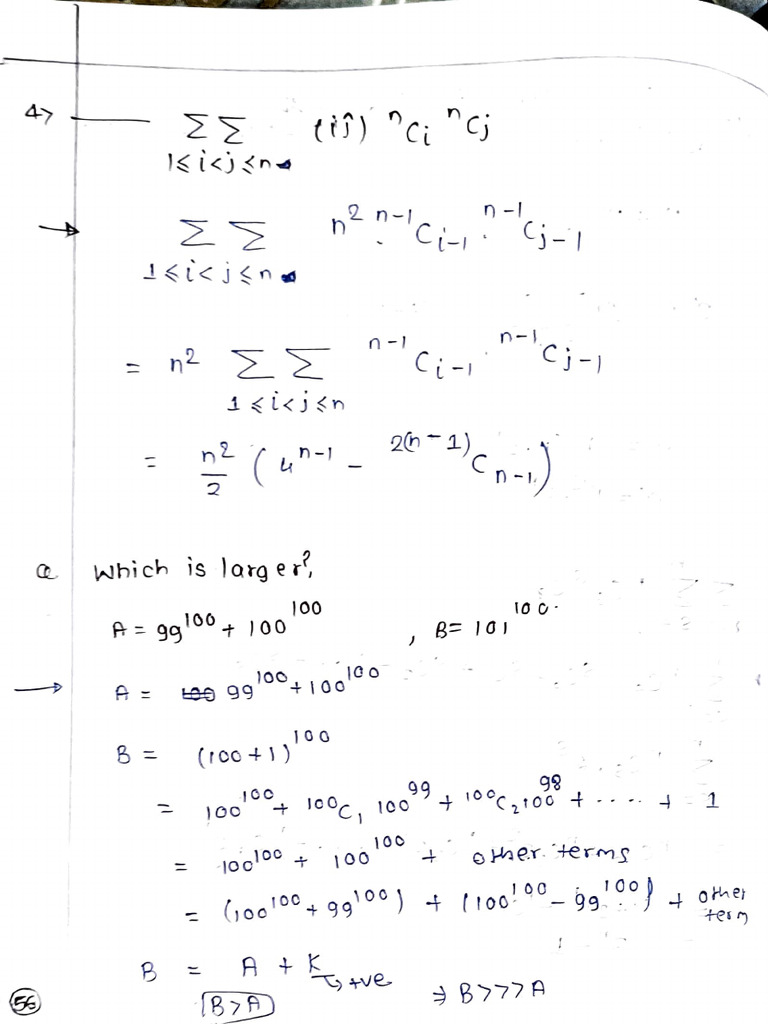 4> ΣΣ (ij) ⁿCi ⁿCj
1≤i<j≤n
→ ΣΣ n² ⁿ⁻¹Ci-1 . ⁿ⁻¹Cj-1
1≤i<j≤n
= n² ΣΣ ⁿ⁻¹Ci-1 . ⁿ⁻¹Cj-1
1≤i<j≤n
= n²/2 (4ⁿ⁻¹ - ²⁽ⁿ⁻¹⁾Cn-1)
Q Which is larger?,
A = 99¹⁰⁰ + 100¹⁰⁰ , B = 101¹⁰⁰.
→ A = 99¹⁰⁰ + 100¹⁰⁰
B = (100+1)¹⁰⁰
= 100¹⁰⁰ + ¹⁰⁰C₁ 100⁹⁹ + ¹⁰⁰C₂ 100⁹⁸ + .... + 1
= 100¹⁰⁰ + 100¹⁰⁰ + other terms
= (100¹⁰⁰ + 99¹⁰⁰) + (100¹⁰⁰ - 99¹⁰⁰) + other term
B = A + K ↳ +ve ⇒ B>>>A
B>A
56